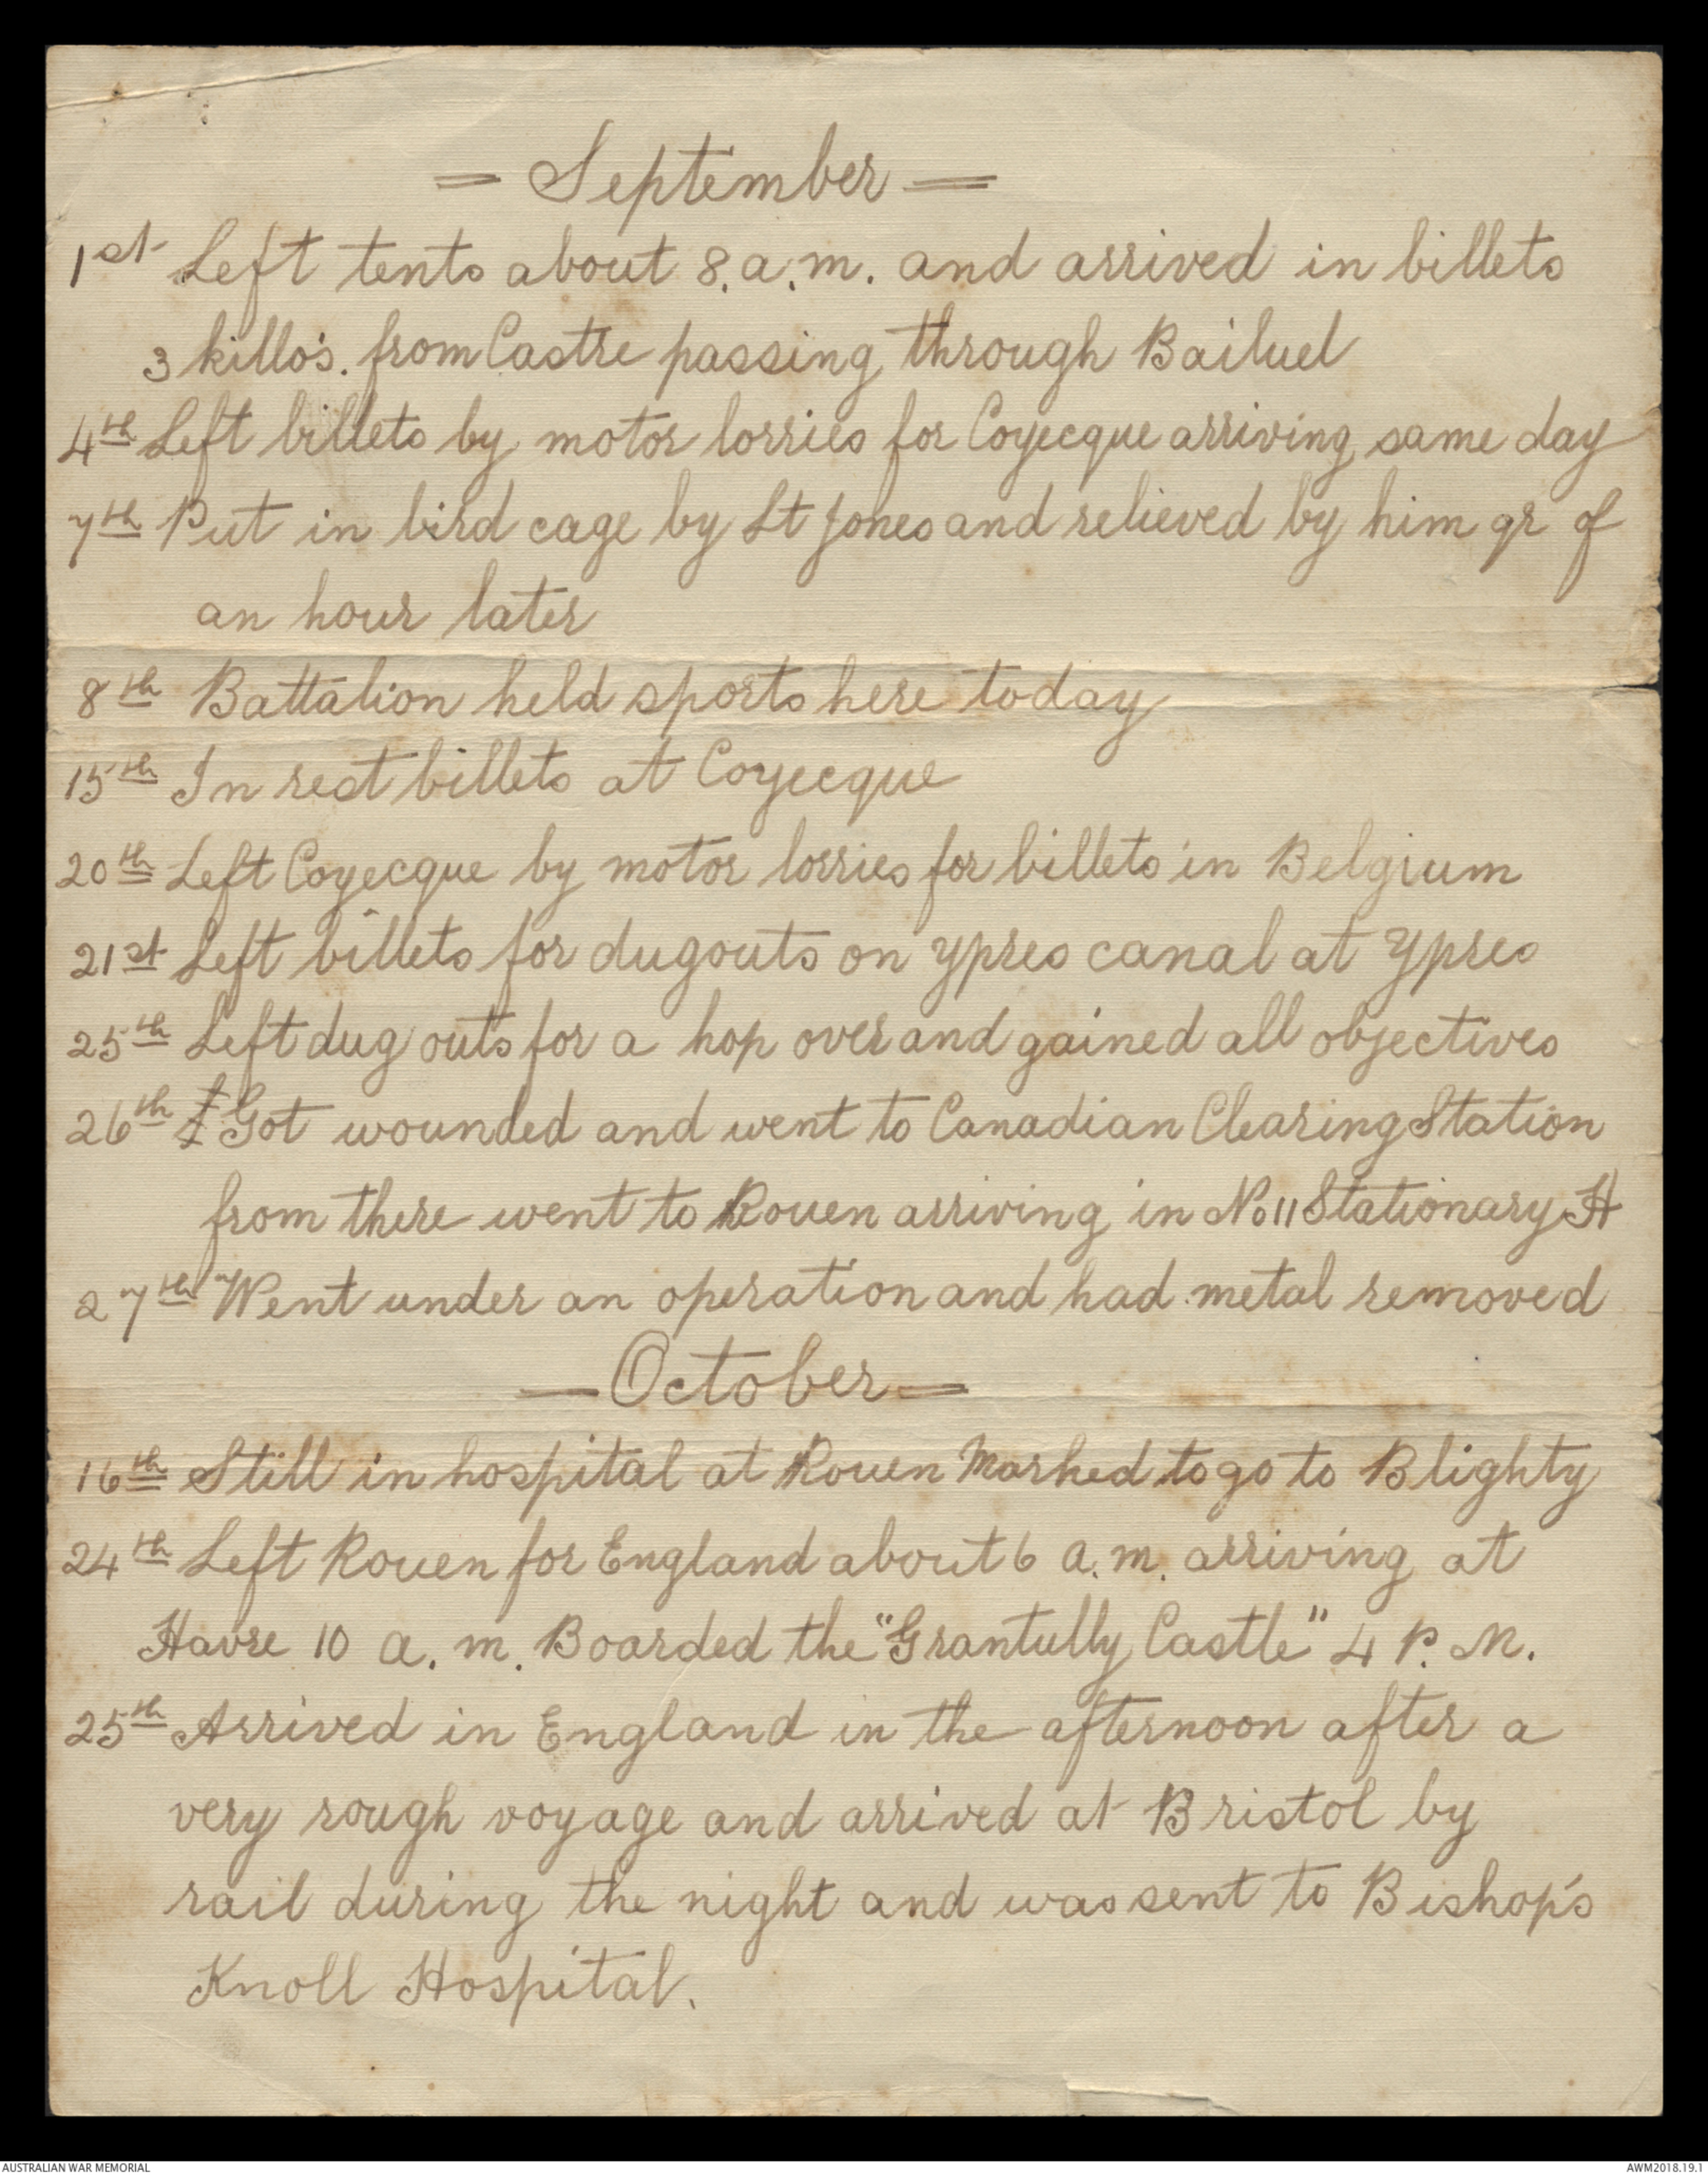 = September =
1st Left tents about 8.a.m. and arrived in billets
3 killo's. from Castre passing through Bailuel
4th Left billets by motor lorries for Coyecque arriving same day
7th Put in bird cage by Lt Jones and relieved by him qr of
an hour later
8th Battalion held sports here today
15th In rest billets at Coyecque
20th Left Coyecque by motor lorries for billets in Belgium
21st Left billets for dugouts on Ypres canal at Ypres
25th Left dug outs for a hop over and gained all objectives
26th Got wounded and went to Canadian Clearing Station
from there went to Rouen arriving in No 11 Stationary H
27th Went under an operation and had metal removed
— October =
16th Still in hospital at Rouen Marked to go to Blighty
24th Left Rouen for England about 6 a.m. arriving at
Havre 10 a.m. Boarded the "Grantully Castle" 4 P.M.
25th Arrived in England in the afternoon after a
very rough voyage and arrived at Bristol by
rail during the night and was sent to Bishop's
Knoll Hospital.
AUSTRALIAN WAR MEMORIAL
AWM2018.19.1